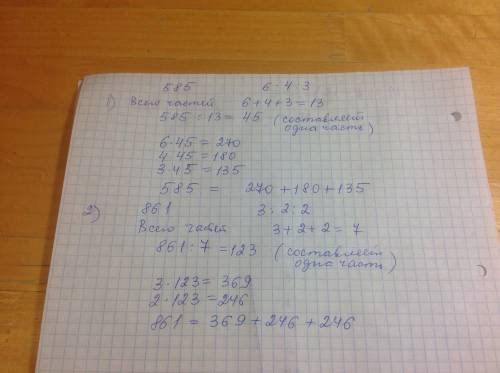 585 6 : 4 : 3
1) Всего частей 6+4+3=13
585 : 13 = 45 (составляет одна часть)
6·45 = 270
4·45 = 180
3·45 = 135
585 = 270 + 180 + 135
2) 861 3 : 2 : 2
Всего частей 3+2+2 = 7
861 : 7 = 123 (составляет одна часть)
3·123 = 369
2·123 = 246
861 = 369 + 246 + 246